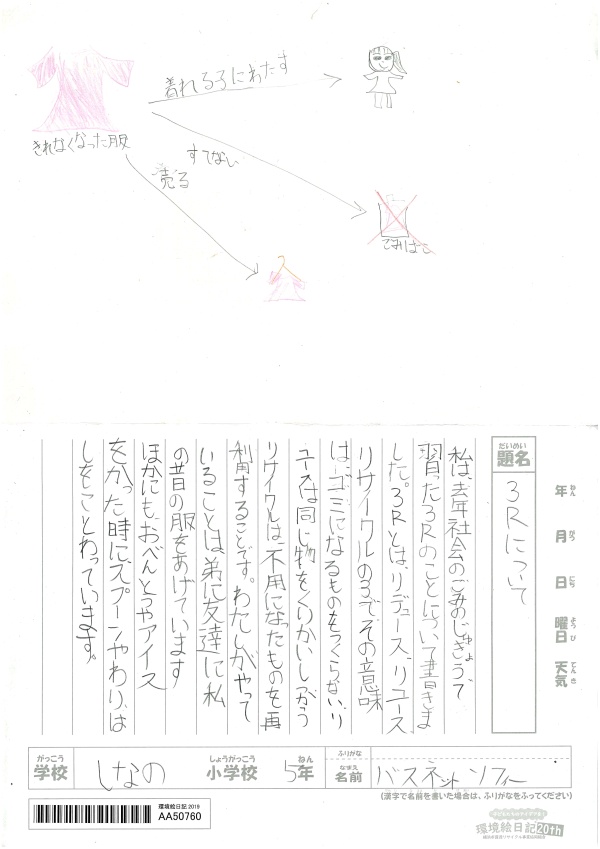 着れる子にわたす
きれなくなった服
すてない
売る
ごみばこ
だいめい
題名
3Rについて
ねん
年
がつ
月
にち
日
ようび
曜日
てんき
天気
私は、去年社会のごみのじゅぎょうで
習った3Rのことについて書きま
した。3Rとは、リデュース、リユース
リサイクルの3つでその意味
は、ゴミになるものをつくらない、リ
ユースは同じ物をくりかいしつかう
リサイクルは、不用になったものを再
利用することです。わたしがやって
いることは弟に友達に私
の昔の服をあげています
ほかにも、おべんとうやアイス
をかった時に、スプーンやわりば
しをことわっています。
がっこう
学校
しなの
しょうがっこう
小学校
5
ねん
年
ふりがな
なまえ
名前
バスネット ソフィー
(漢字で名前を書いた場合は、ふりがなをふってください)
環境絵日記 2019
AA50760
環境絵日記 20th